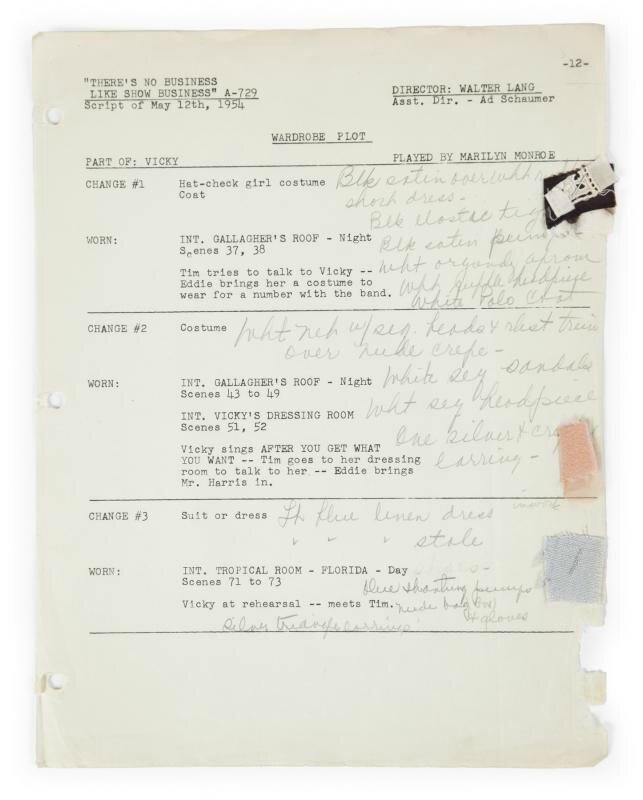 -12-
"THERE'S NO BUSINESS
LIKE SHOW BUSINESS" A-729
Script of May 12th, 1954
DIRECTOR: WALTER LANG
Asst. Dir. - Ad Schaumer
WARDROBE PLOT
PART OF: VICKY
PLAYED BY MARILYN MONROE
CHANGE #1 Hat-check girl costume Blk satin over wht
Coat short dress -
Blk
WORN: INT. GALLAGHER'S ROOF - Night Blk satin pumps -
Scenes 37, 38
wht organdy apron
Tim tries to talk to Vicky --
Eddie brings her a costume to wht headpiece
wear for a number with the band. White Polo Coat
CHANGE #2 Costume Wht net w/ seq. beads & train
over nude crepe -
WORN: INT. GALLAGHER'S ROOF - Night White seq sandals
Scenes 43 to 49
INT. VICKY'S DRESSING ROOM Wht seq headpiece
Scenes 51, 52
One silver &
Vicky sings AFTER YOU GET WHAT
YOU WANT -- Tim goes to her dressing earring -
room to talk to her -- Eddie brings
Mr. Harris in.
CHANGE #3 Suit or dress Lt blue linen dress
" " " stole
WORN: INT. TROPICAL ROOM - FLORIDA - Day
Scenes 71 to 73
blue shantung pumps
Vicky at rehearsal -- meets Tim. nude bag
& gloves
silver triangle earrings